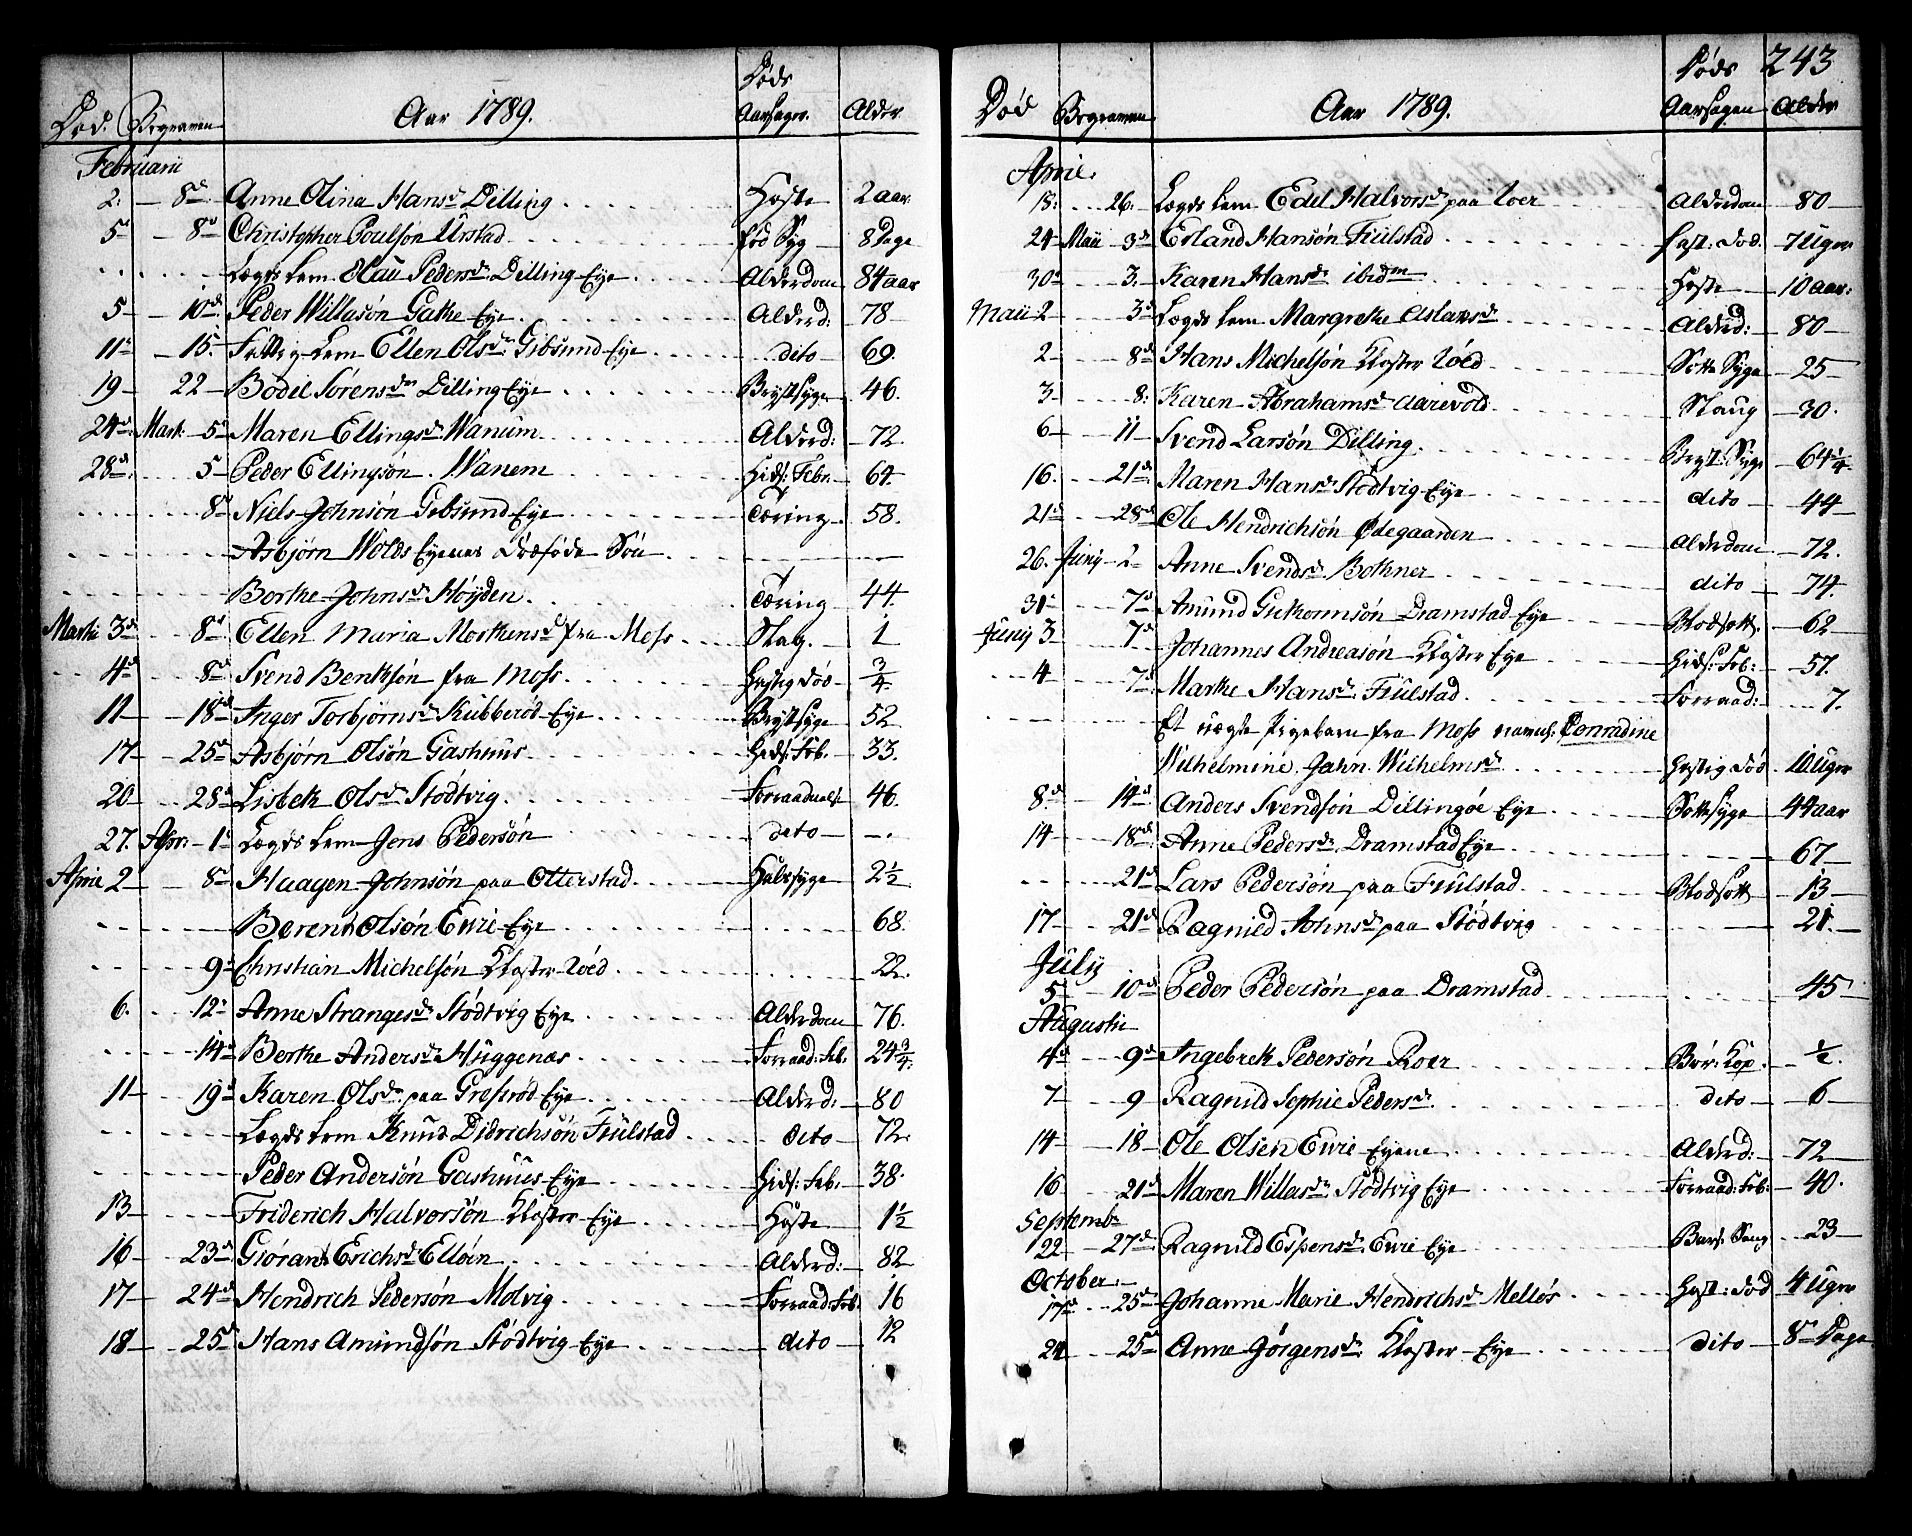 Død. Begraven Aar 1789. Døds Aarsagen. Alder
Februarii
2. 8de Anne Olina Hansd. Dilling Hoste 2 aar
5 8de Christopher Poulson Urstad fød Syg 8 Dage
Lægds Lem Olau Pedersd. Dilling Eye Alderdom 84 aar
5 10de Peder Willasøn Gathe Eye Alderd: 78
11 15. Fattig Lem Ellen Olsd. Gibsund Eye dito 69.
19 22 Bodil Sørensd. Dilling Eye Brystsyge 46.
24de Mart. 5 Maren Ellingsd. Wanum Alderd: 72.
28de 5 Peder Ellingsøn. Wanem Hids: Febr. 64.
8de Niels Johnsøn Gibsund Eye Tæring 58.
Asbjørn Wolds Eyenes Døefødte Søn
Berthe Johnsd. Høyden Tæring 44.
Martii 3de 8de Ellen Maria Morthensd. fra Moss Slag. 1
4de 8de Svend Benthsøn fra Moss Hastig død 3/4
11 18de Inger Torbjørnsd. Kubberød Eye Brystsyge 52
17 25de Asbjørn Olsøn Gashuus Hids: Feb. 33.
20 28de Lisbeth Olsd. Stødtvig Forraadnelse 46.
27. Apr. 1. Lægds Lem Jens Pedersøn dito
Aprie 2 8de Haagen Johnsøn paa Otterstad Halssyge 2 1/2
Berent Olsøn Ewie Eye 68.
9de Christian Michelsøn Kloster Roed 22.
6. 12te Anne Strangesd. Stødtvig Eye Alderdom 76.
14de Berthe Andersd. Huggenæs Forraad: Feb. 24 3/4.
11 19de Karen Olsd. paa Grefsrød Eye Alderd: 80
Lægds Lem Knud Didrichsøn Fiulstad dito 72.
Peder Andersøn Gashuus Eye Hids: Feb. 38.
13 Friderich Halvorsøn Kloster Eye Hoste 1 1/2
16 23de Giøran Erichsd. Elløen Alderd: 82
17 24de Hendrich Pedersøn Molvig Forraad: Feb. 16
18 25de Hans Amundsøn Stødtvig Eye dito 12
243
Død Begraven Aar 1789. Døds Aarsagen Alder
Aprie.
18. 26. Lægds Lem Edel Halvorsd. paa Roer Alderdom 80
24 Maii 3de Erland Hansøn Fiulstad Hast: død. 7 Uger
30te 3. Karen Hansd. ibidm Hoste 10 aar.
Maii 2 3de Lægds Lem Margrethe Aslaksd Alderd: 80
2 8de Hans Michelsøn Kloster Roed Sotte Syge 25
3 8. Karen Abrahamsd. Aarevold Slaug 30.
6 11 Svend Larsøn Dilling. Bryst: Syge 64 1/4
16. 21de Maren Hansd. Stødtvig Eye dito 44
21de 28de Ole Hendrichsøn Ødegaarden Alderdom 72.
26. Junij 2 Anne Svendsd. Bothner dito 74.
31te 7de Amund Guthormsøn Dramstad Eye Blodsott. 62
Junij 3 7de Johannes Andreasøn Kloster Eye Hids: Feb: 57.
4 7de Marthe Hansd. Fiulstad Forraad: 7.
Et uægte Pigebarn fra Moss navnl. Conradine
Wilhelmine Jahn Wilhelmsd. Hastig død 10 Uger
8de 14de Anders Svendsøn Dillingøe Eye Sottesyge 44 aar
14 18de Anne Pedersd. Dramstad Eye 67
21de Lars Pedersøn paa Fiulstad Blodsott 13
17 21de Ragnild Johnsd. paa Stødtvig 21.
July
5 10de Peder Pedersøn paa Dramstad 45
Augustii
4de 9de Ingebreth Pedersøn Roer Bør: Kop. 1/2
7 9 Ragnild Sophie Pedersd. dito 6
14 18 Ole Olsen Ewie Eyene Alderd: 72
16 21de Maren Willasd. Stødtvig Eye Forraad: Feb: 40.
Septembr.
22 27de Ragnild Espensd. Ewie Eye Bars. Seng 23
October.
17de 25de Johanne Marie Hendrichsd. Melløs Hast: død 4 Uger
24 25de Anne Jørgensd. Kloster Eye dito 8te Dage